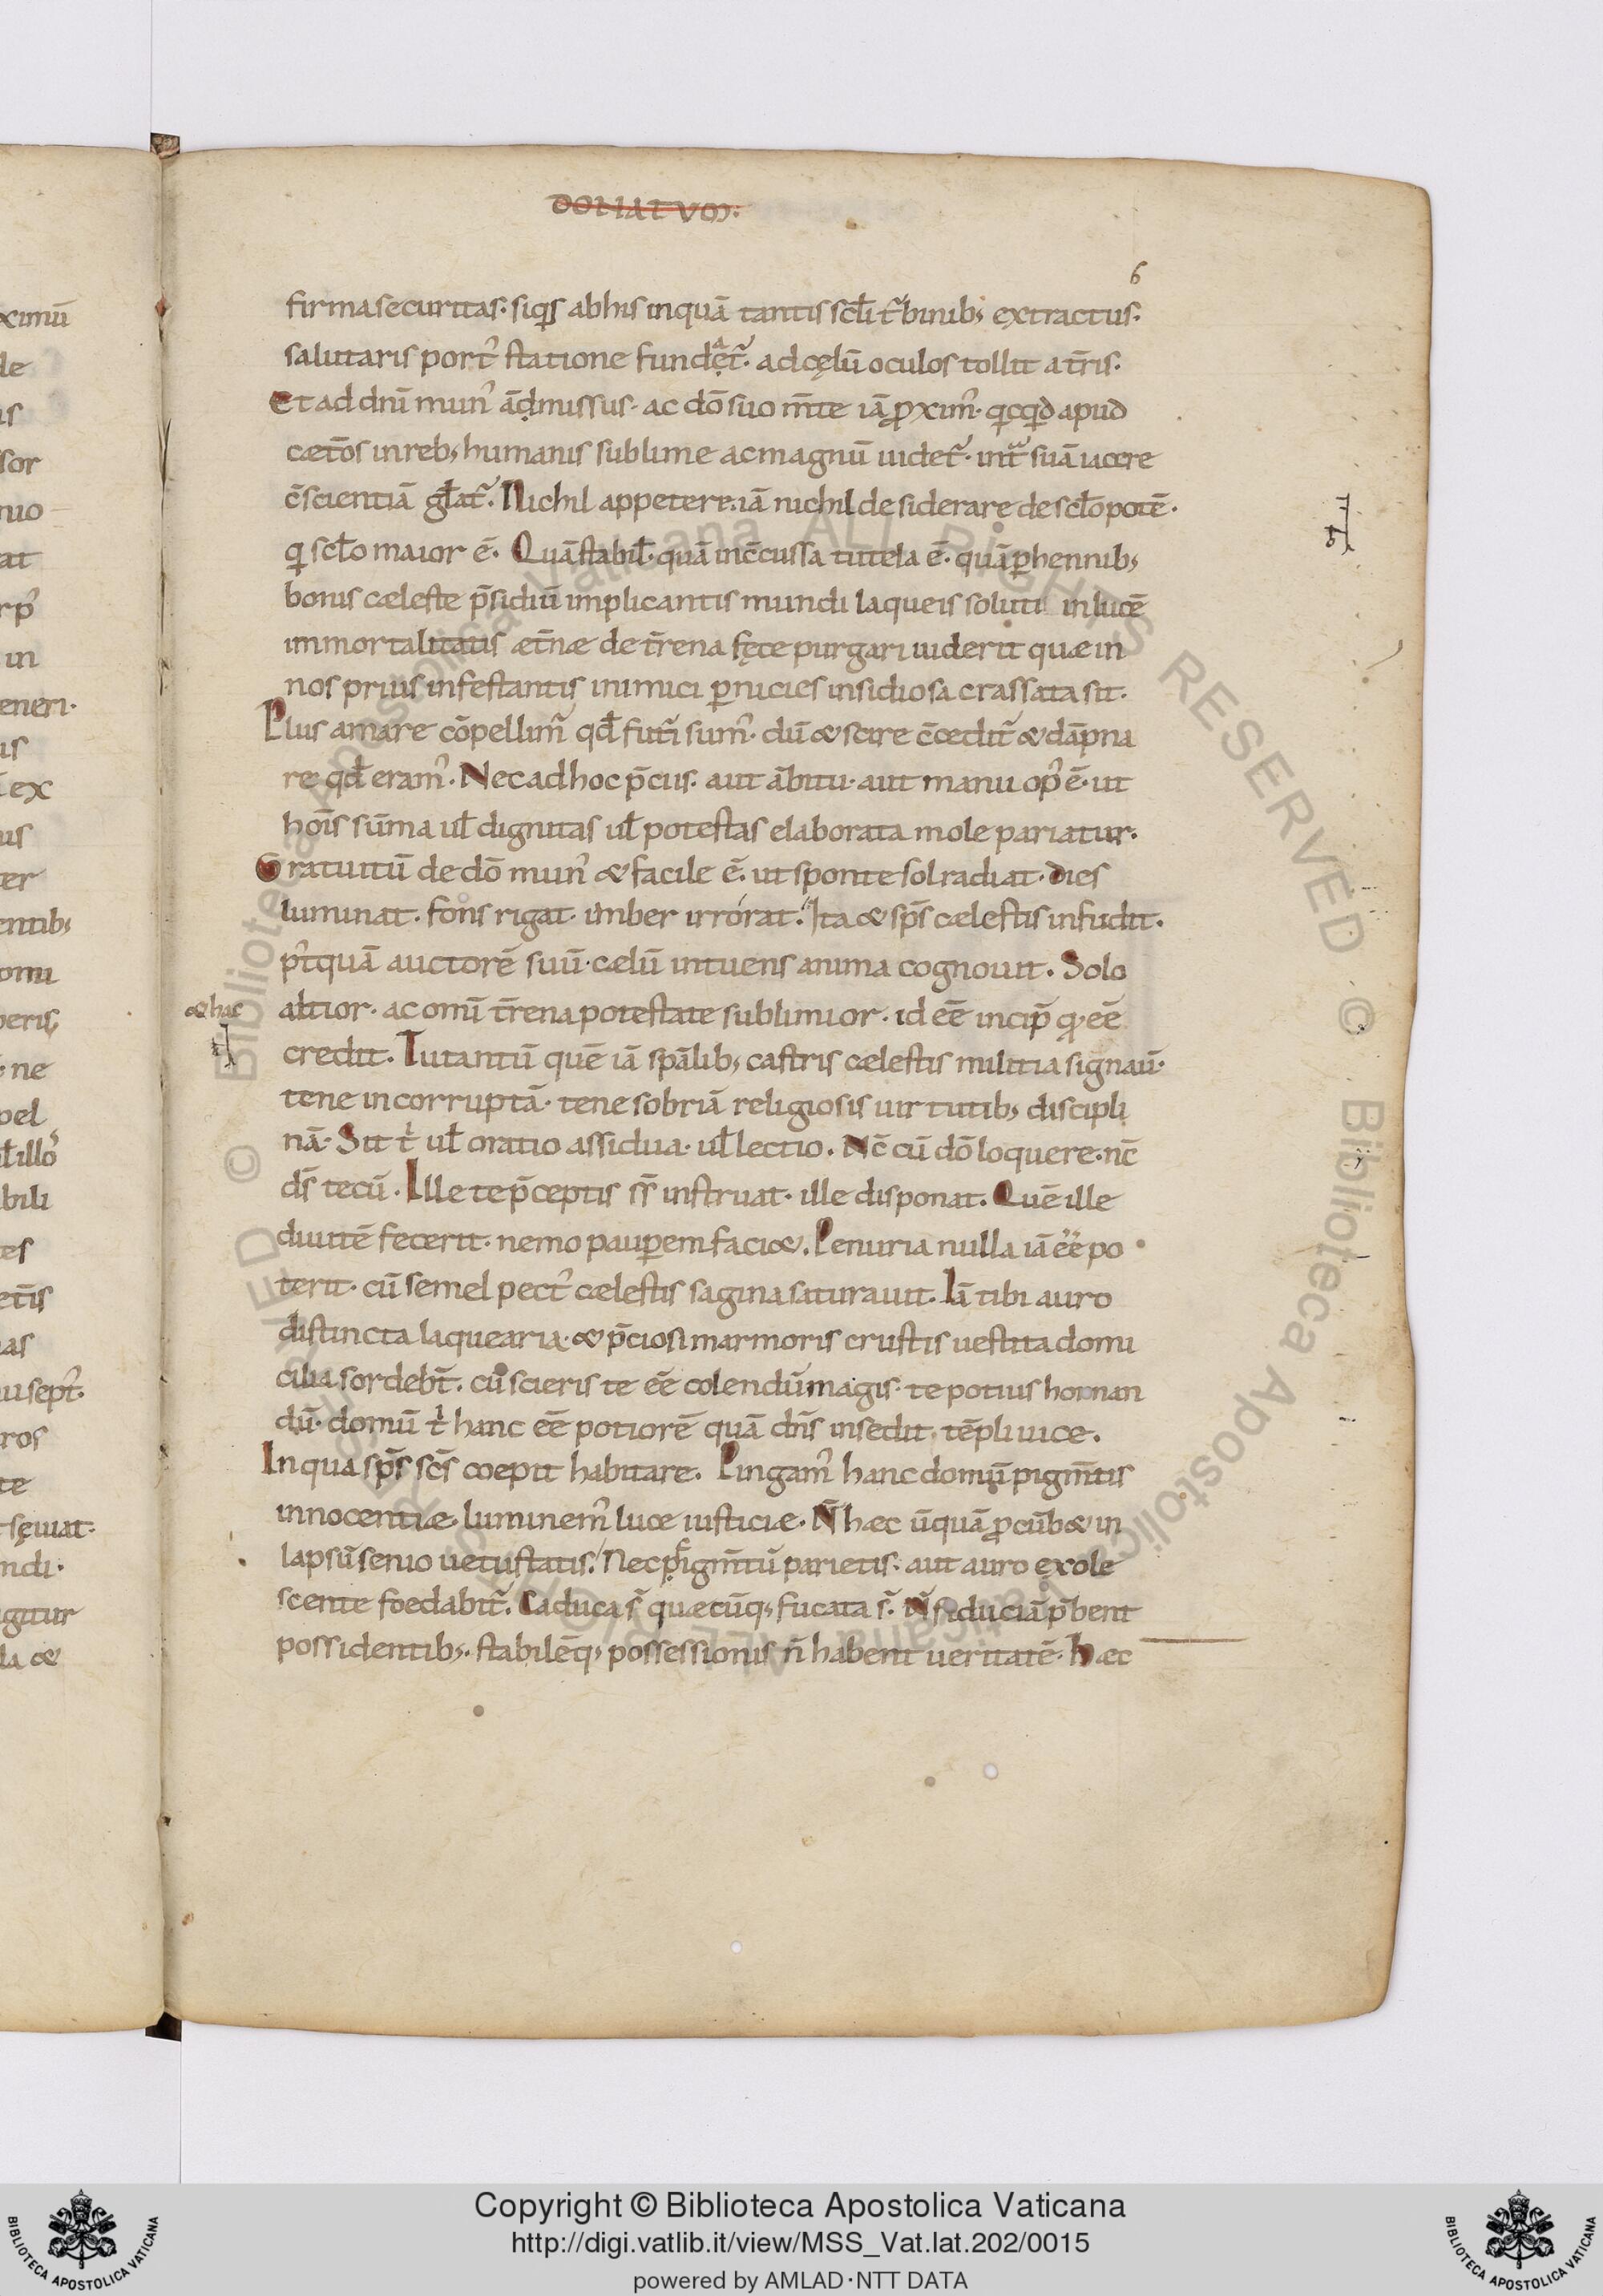 DONATVM.
6
firma securitas· siq̄s ab his inquā tantis sc̄li t᷒binib; extractus·
salutaris port᷒ statione fundet᷒· ad cęlū oculos tollit a t̄ris·
Et ad dn̄i mun᷒ ādmissus· ac dō suo m̄te iā ꝓxim᷒· qcqd apud
cæt̄os in reb; humanis sublime ac magnū uidet᷒· int̄ suā iacere
c̄scientiā gl̄at᷒. Nichil appetere· iā nichil desiderare de sc̄lo potē·
q sc̄lo maior ē. Quā stabil̄· quā inc̄cussa tutela ē· quā ꝑhennib;
bonis cæleste p̄sidiū implicantis mundi laqueis soluti in lucē
immortalitatis æt̄næ de t̄rena fęce purgari uiderit quæ in
nos prius infestantis inimici ꝑnicies insidiosa crassata sit·
Plus amare cōpellim᷒ qd̄ futi sum᷒· dū & scire c̄cedit᷒ & dāpna
re qd̄ eram᷒. Nec ad hoc p̄cus· aut ābitu· aut manu op᷒ ē· ut
hōis sūma ul̄ dignitas ul̄ potestas elaborata mole pariatur.
Gratuitū de dō mun᷒ & facile ē· ut sponte sol radiat· dies
luminat· fons rigat· imber irrorat· Ita & sp̄s cælestis infudit·
p᷒tquā auctorē suū· cælū intuens anima cognouit. Solo
&hac
altior· ac om̄i t̄rena potestate sublimior· id eē incip̄ q eē
credit. Tu tantū quē iā spālib; castris cælestis militia signauī·
tene incorruptā· tene sobriā religiosis uirtutib; discipli
nā· Sit t ul̄ oratio assidua· ul̄ lectio. Nc̄ cū dō loquere· nc̄
ds̄ tecū. Ille te p̄ceptis ss̄ instruat· ille disponat. Quē ille
diuitē fecerit· nemo pauꝑem faci&. Penuria nulla iā eē po
terit· cū semel pect᷒ cælestis sagina saturauit. Iā tibi auro
distincta laquearia· & p̄ciosi marmoris crustis uestita domi
cilia sordebt̄· cū scieris te eē colendū magis· te potius hornan
dū· domū t hanc eē potiorē quā dn̄s insedit· tēpli uice.
In qua sp̄s sc̄s coepit habitare. Pingam᷒ hanc domū pigm̄tis
innocentiæ· luminem᷒ luce iusticiæ· N̄ hæc ūquā ꝓcūb& in
lapsū senio uetustatis· Nec pigm̄tū parietis· aut auro exole
scente foedabit᷒. Caduca s᷒ quæcūq; fucata s᷒· N̄ fiduciā p̄bent
possidentib;· stabilēq; possessionis n̄ habent ueritatē· Hæc
ximū
de
is
sor
nio
at
rp᷒
in
eneri·
us
ex
us
er
entib;
omi
peris
ne
pel
ul̄ illo᷒
bili
es
et̄is
as
u sept᷒·
ros
te
sęuiat·
ndi·
gitur
la &
© Biblioteca Apostolica Vaticana ALL RIGHTS RESERVED © Biblioteca Apostolica Vaticana ALL RIGHTS RESERVED
BIBLIOTECA APOSTOLICA VATICANA
Copyright © Biblioteca Apostolica Vaticana
http://digi.vatlib.it/view/MSS_Vat.lat.202/0015
powered by AMLAD·NTT DATA
BIBLIOTECA APOSTOLICA VATICANA